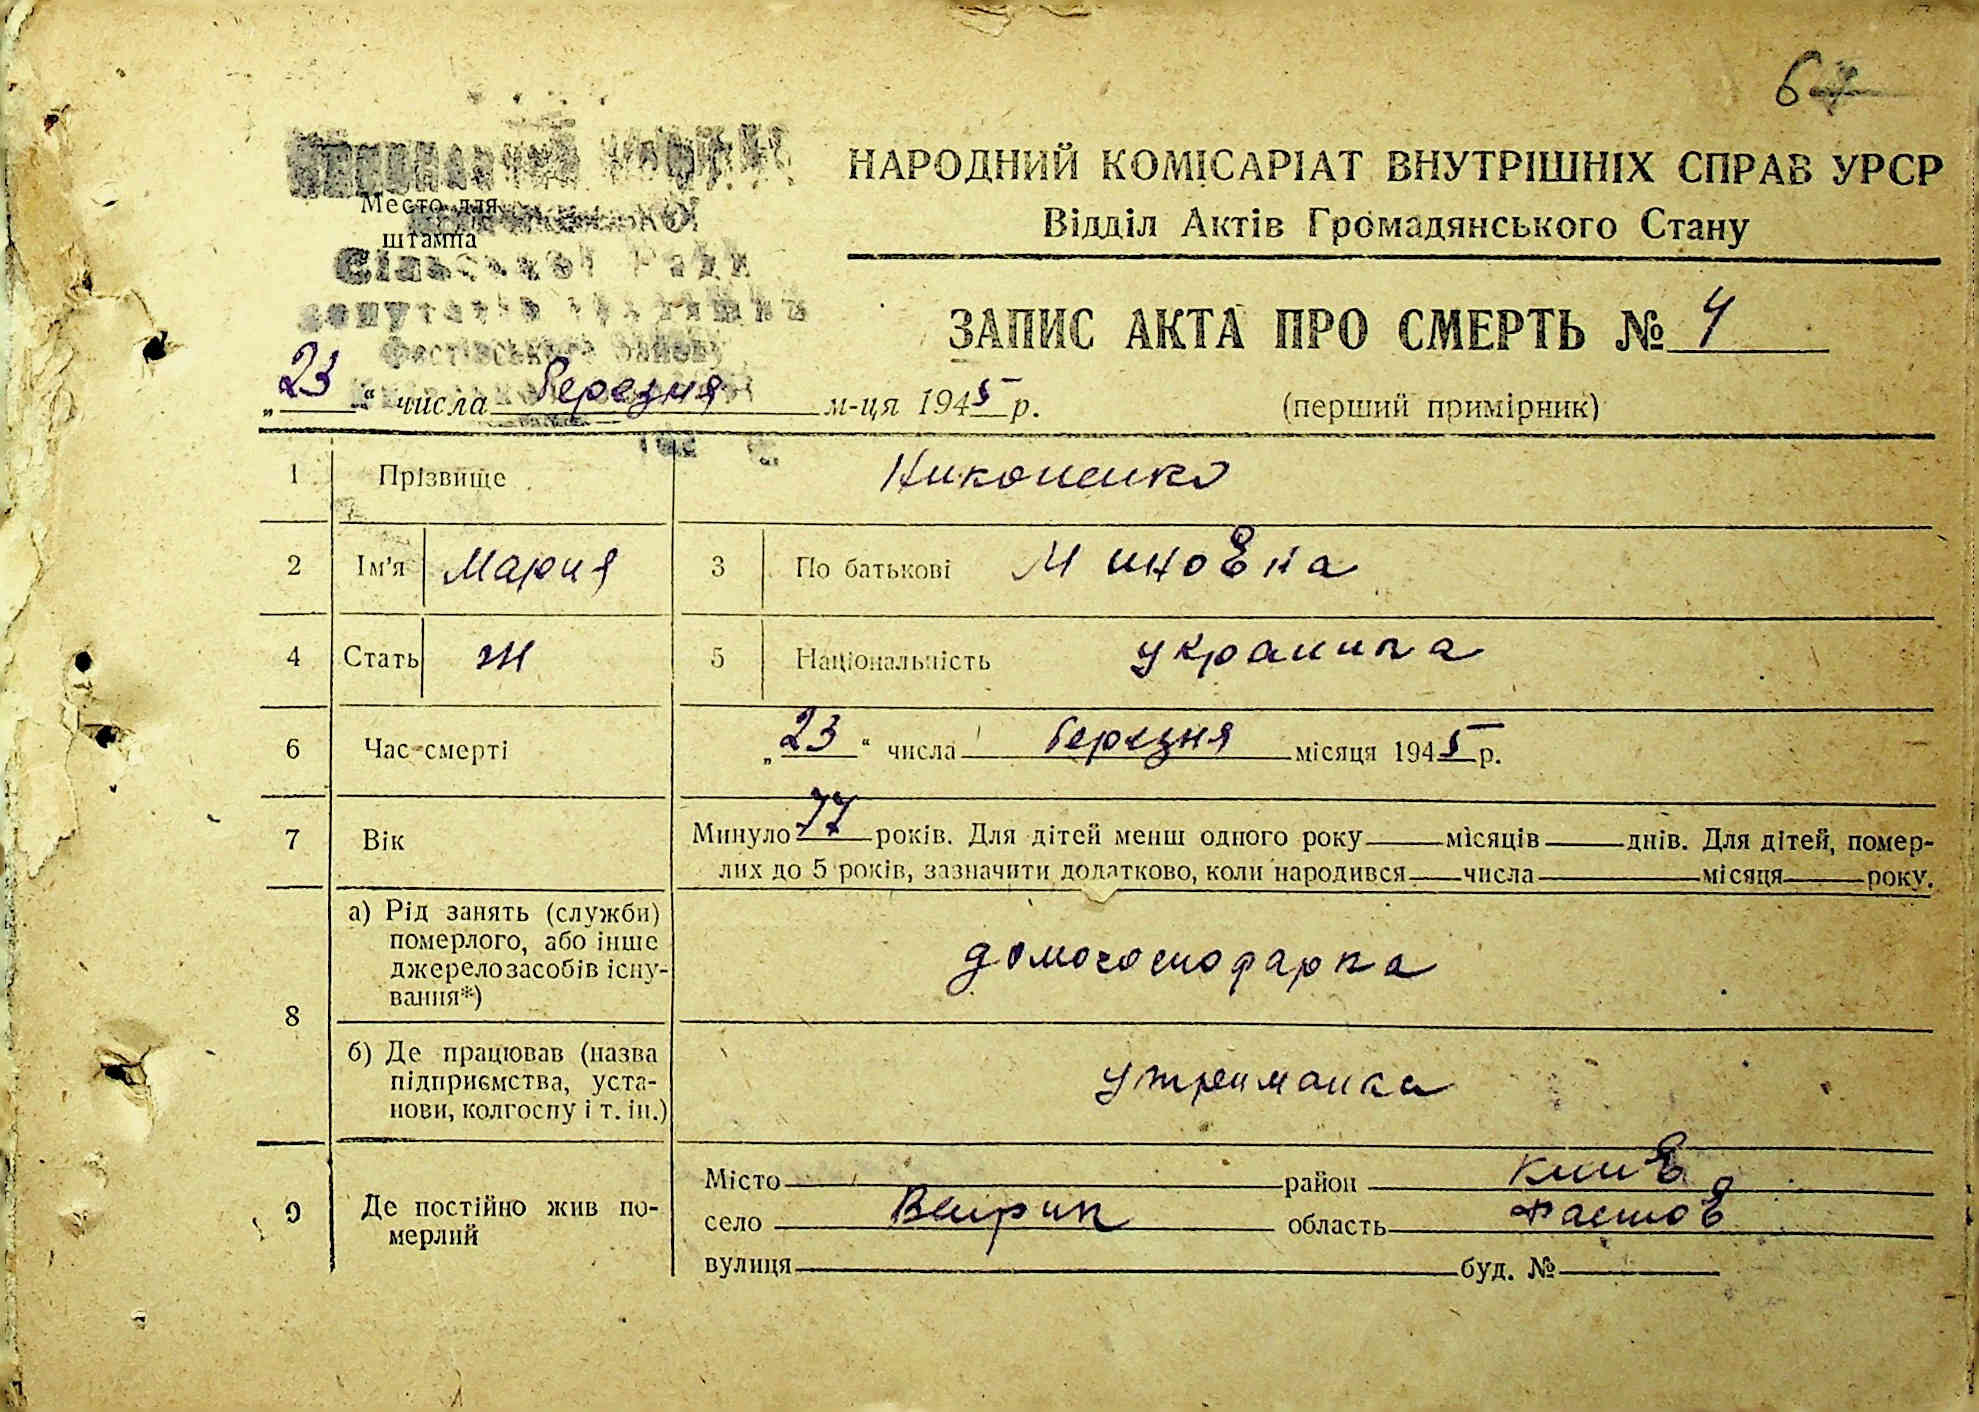 6
НАРОДНИЙ КОМІСАРІАТ ВНУТРІШНІХ СПРАВ УРСР
Відділ Актів Громадянського Стану
Место для
штампа
Сільської Ради
депутатів
Фастівського району
ЗАПИС АКТА ПРО СМЕРТЬ № 4
„23“ числа березня м-ця 1945 р.
(перший примірник)
1 Прізвище Никоненко
2 Ім'я Мария 3 По батькові Миновна
4 Стать Ж 5 Національність украинка
6 Час смерті „23“ числа березня місяця 1945 р.
7 Вік Минуло 77 років. Для дітей менш одного року місяців днів. Для дітей, помер-
лих до 5 років, зазначити додатково, коли народився числа місяця року.
8 а) Рід занять (служби)
померлого, або інше
джерело засобів існу-
вання*)
домогосподарка
б) Де працював (назва
підприємства, уста-
нови, колгоспу і т. ін.)
утриманка
9 Де постійно жив по-
мерлий
Місто район Киів
село Веприк область Фастов
вулиця буд. №